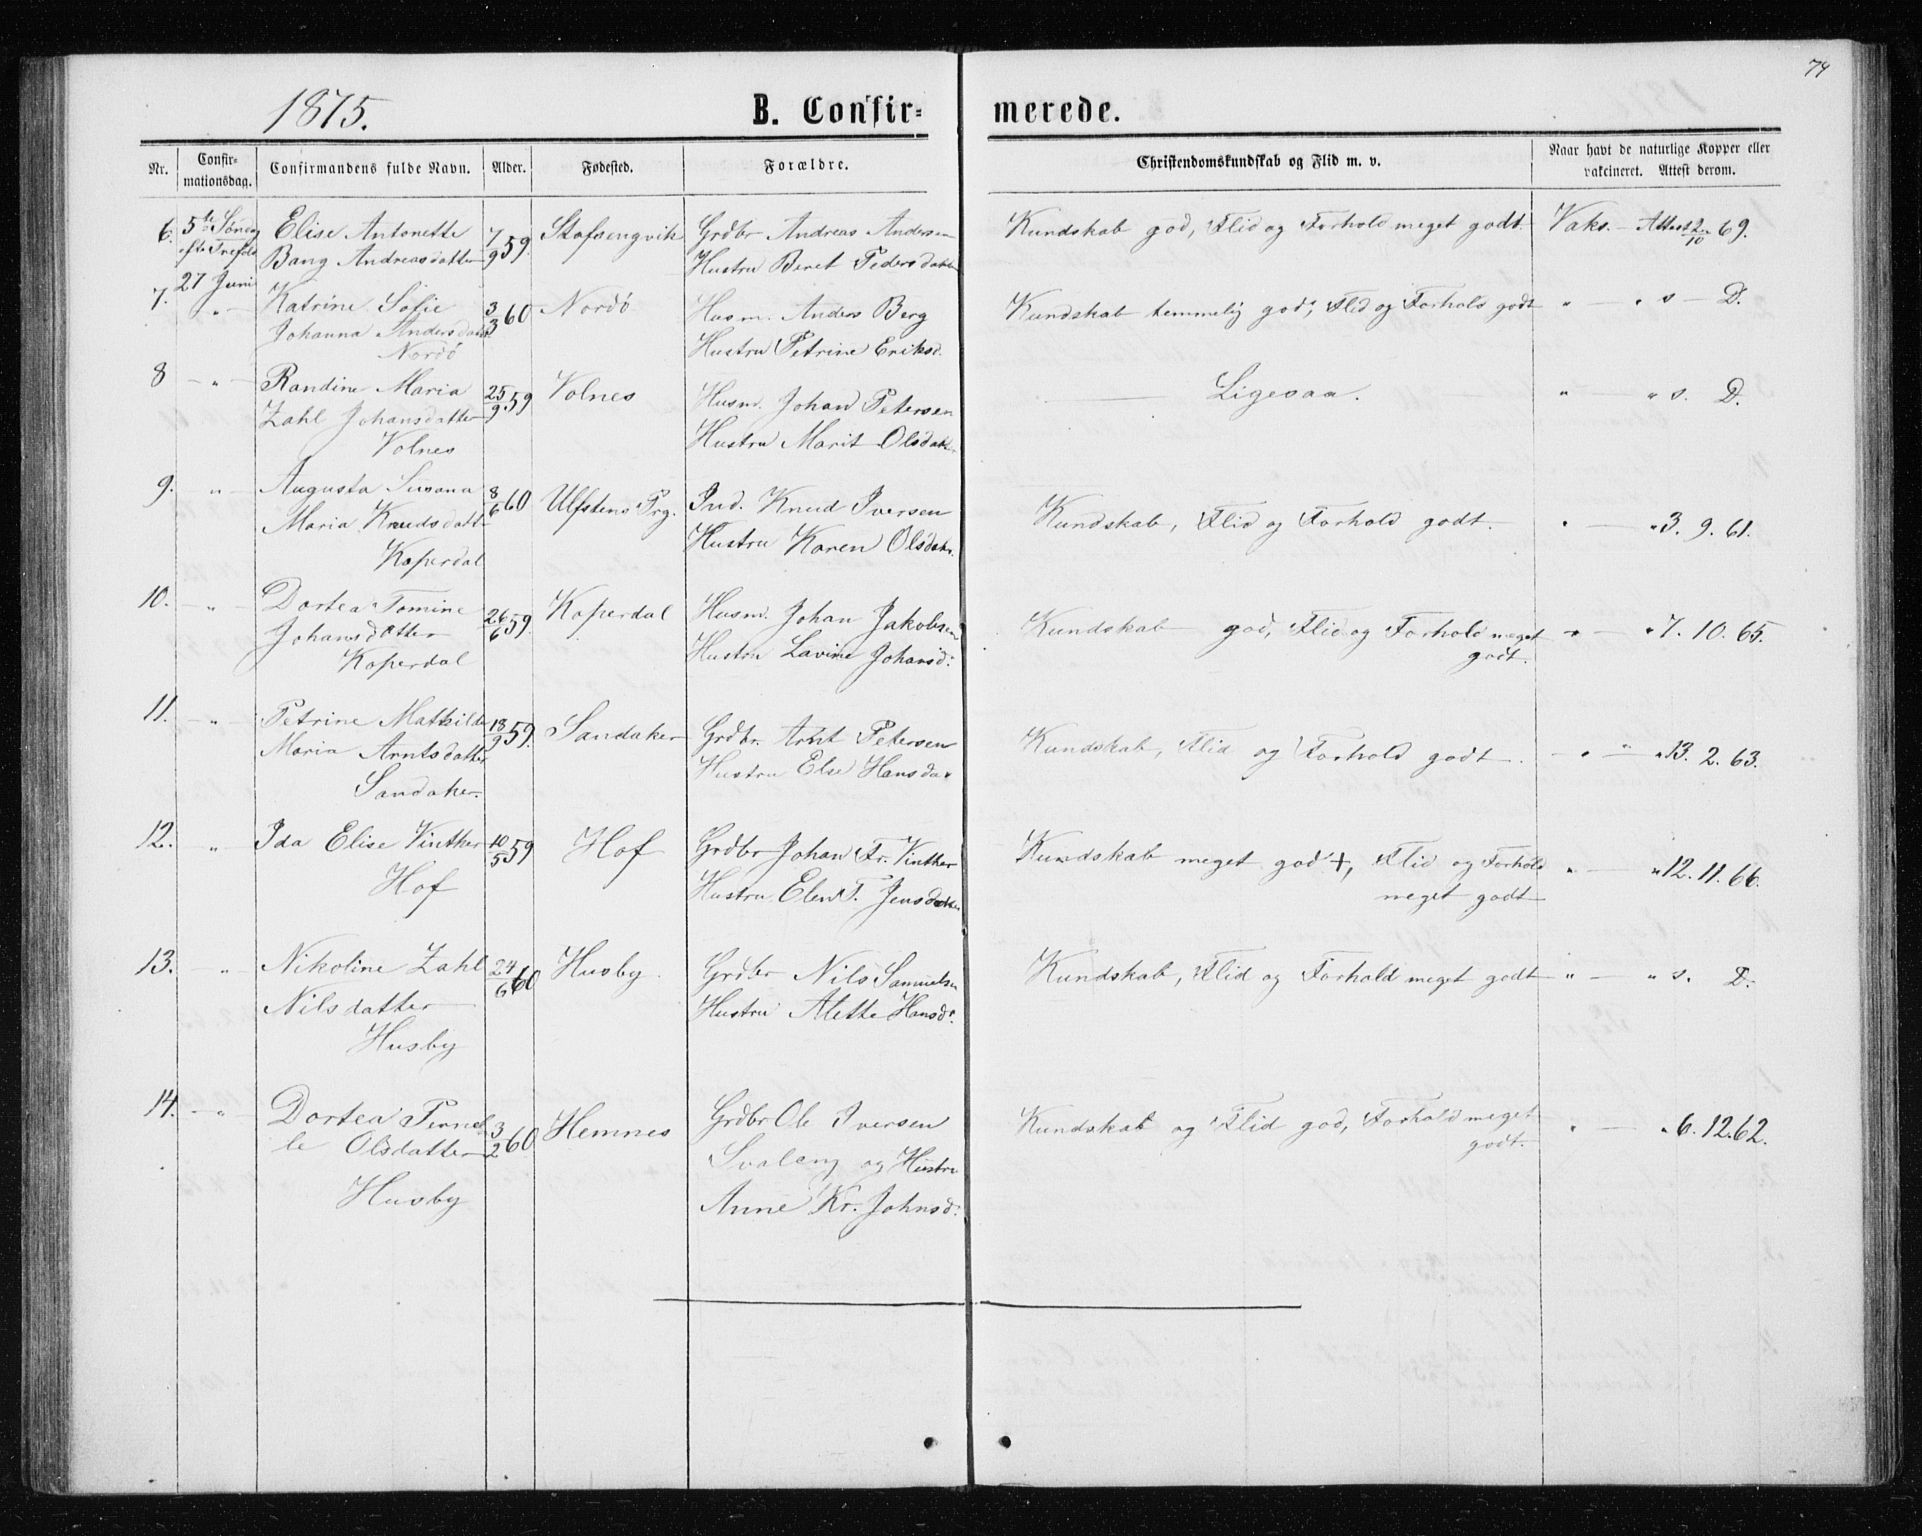 74
1875.
B. Confir=
merede.
Nr.
Confir-
mationsdag.
Confirmandens fulde Navn.
Alder.
Fødested.
Forældre.
Christendomskundskab og Flid m. v.
Naar havt de naturlige Kopper eller
vakcineret. Attest derom.
6. 5te Søndag Elise Antonette 7/9 59. Grdbr Andreas Andersen Kundskab god, Flid og Forhold meget godt. Vaks. - Attest 2/10 69.
Bang Andreasdatter Hustru Beret Pedersdatter
27 Juni
7. " Katrine Sofie 3/3 60 Nordø Husm. Anders Berg Kundskab temmelig god, Flid og Forhold godt " " s - D.
Johanna Andersdatt. Hustru Petrine Eriksd.
Nordø
8 - " - Randine Maria 25/9 59 Volnes Husm. Johan Petersen Ligesaa. " " s. D.
Zahl Johansdatter Hustru Marit Olsdatter
Volnes
9. " Augusta Susana 8/6 60 Ulfstens Prg. Ind. Knud Iversen Kundskab, Flid og Forhold godt. " - " 3. 9. 61.
Maria Knudsdatt Hustru Karen Olsdatr.
Koperdal
10. - " Dortea Tomine 26/6 59. Koperdal Husm. Johan Jakobsen Kundskab god, Flid og Forhold meget " - " 7. 10. 65.
Johansdatter Hustru Lavine Johansd: godt.
Koperdal
11. - " Petrine Mathilde 18/9 59. Sandaker Grdbr. Arnt Petersen Kundskab, Flid og Forhold godt. - " " " 13. 2. 63.
Maria Arntsdatter Hustru Else Hansda
Sandaker.
12. " Ida Elise Vinther 10/5 59 Hof Grdbr Johan Fr. Vinther Kundskab meget god +, Flid og Forhold " - " 12. 11. 66.
Hof Hustru Elen T. Jensdatter meget godt
13. - " Nikoline Zahl 24/6 60 Husby. Grdbr Nils Samuelsen Kundskab, Flid og Forhold meget godt " - " s. D.
Nilsdatter Hustru Alette Hansd:
Husby
14. - " Dortea Pernel- 3/2 60 Hemnes Grdbr Ole Iversen Kundskab og Flid god, Forhold meget " - " 6. 12. 62.
le Olsdatter Svaleng og Hustru godt.
Husby Anne Kr. Johnsd: